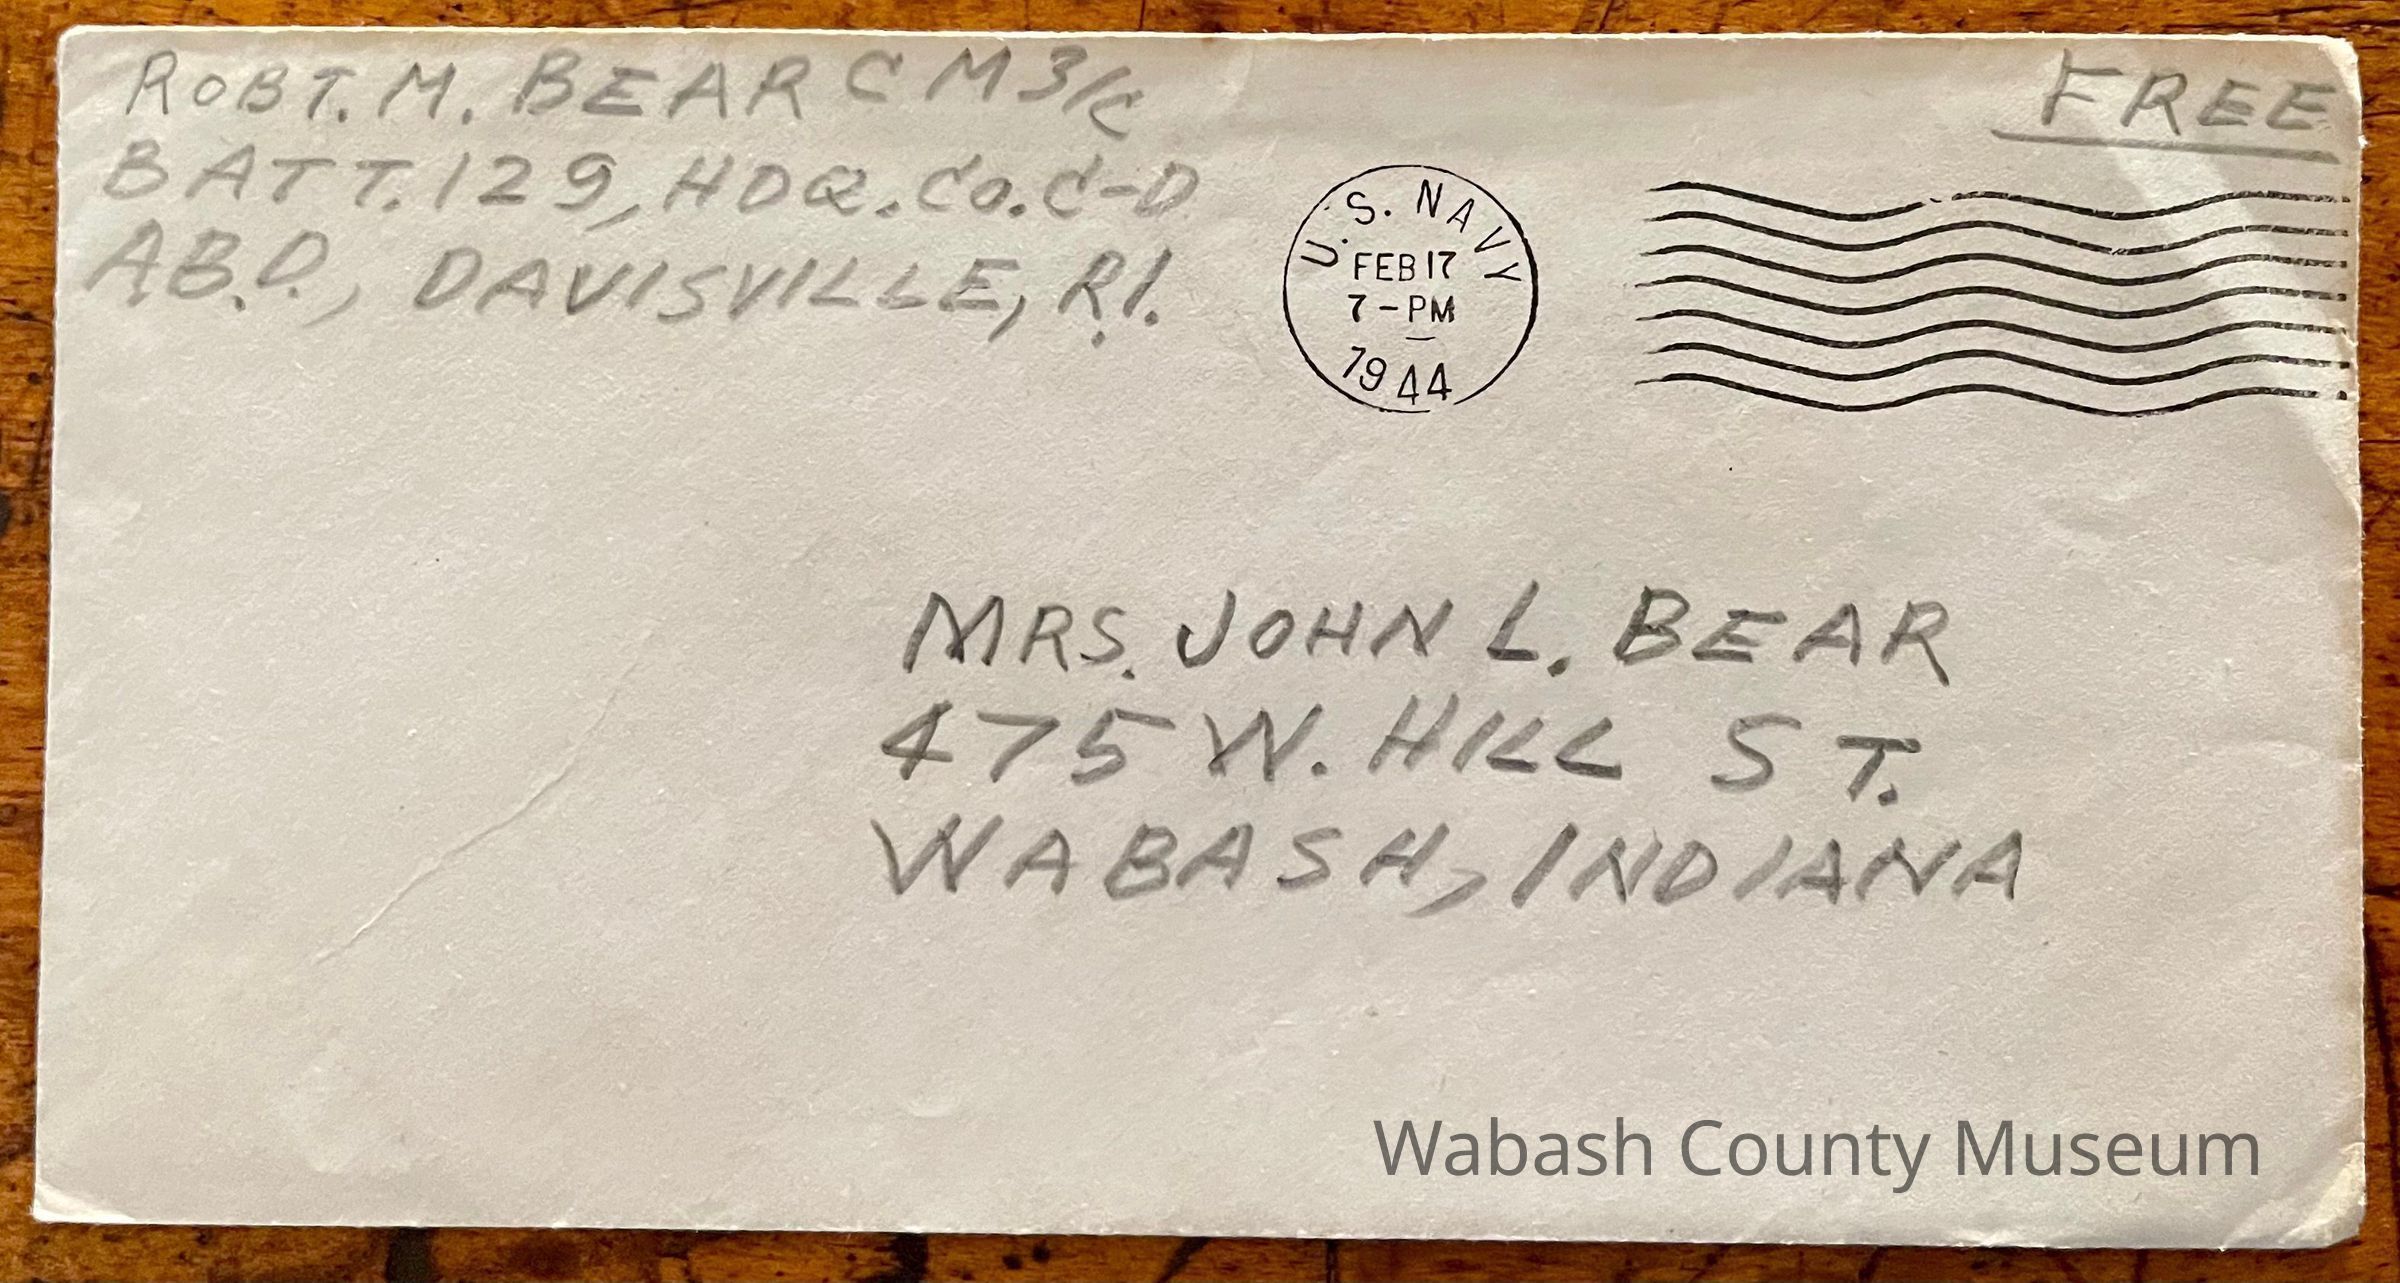 ROBT. M. BEAR C M 3/c
BATT. 129, HDQ. Co. C-D
A.B.D., DAVISVILLE, R.I.
FREE
U.S. NAVY
FEB 17
7-PM
1944
MRS. JOHN L. BEAR
475 W. HILL ST.
WABASH, INDIANA
Wabash County Museum